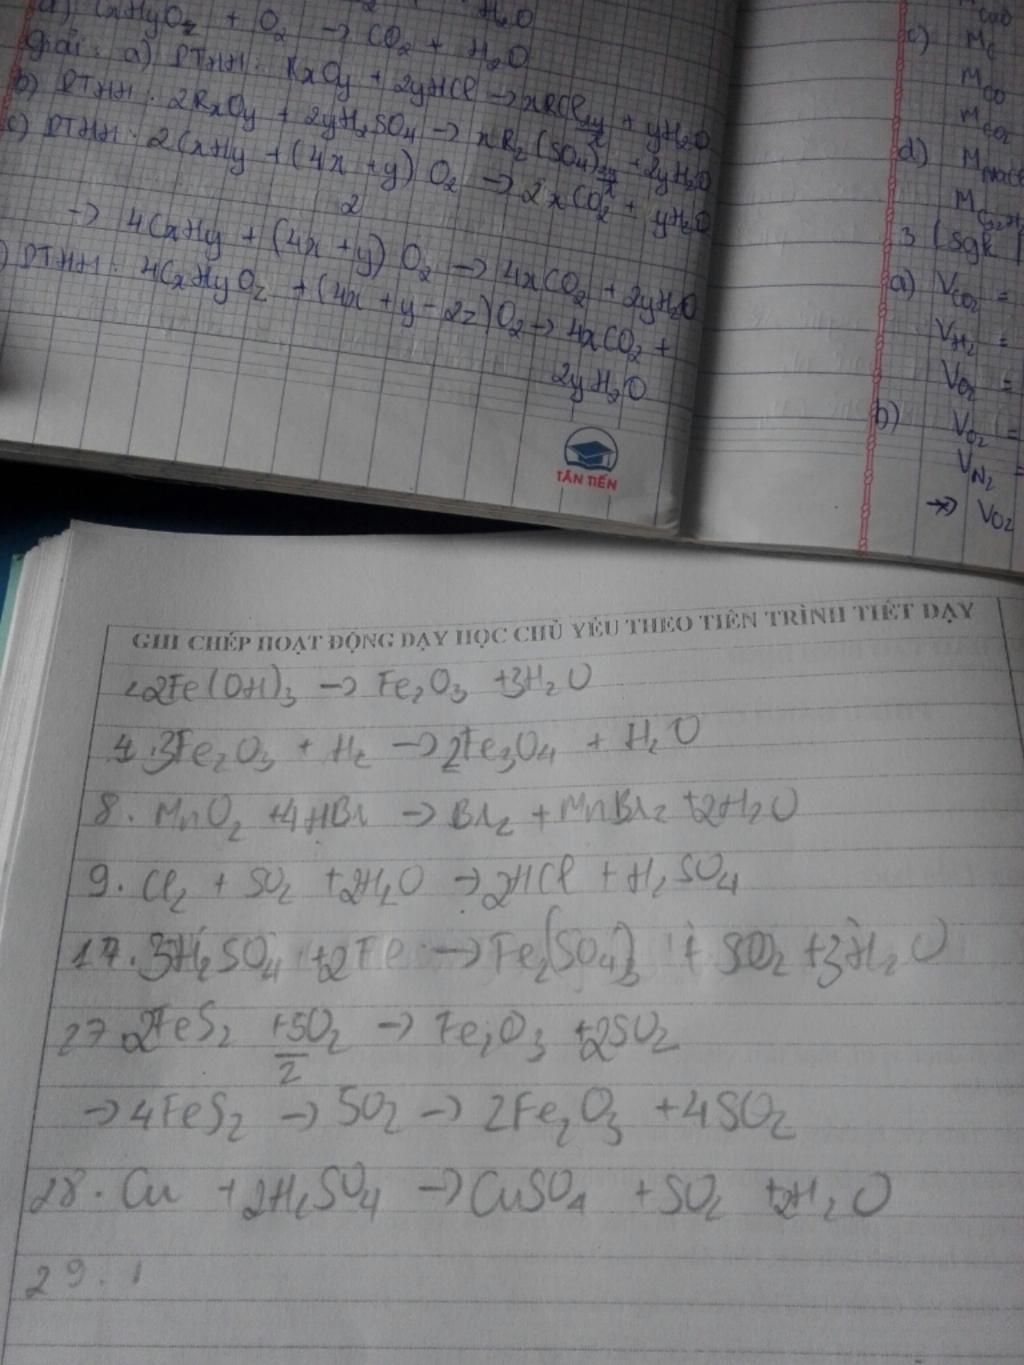 d) CxHyOz + O2 → CO2 + H2O
Giải: a) PTHH: RxOy + 2yHCl → xRCl2y/x + yH2O
b) PTHH: 2RxOy + 2yH2SO4 → xR2(SO4)2y/x + 2yH2O
c) PTHH: 2CxHy + (4x+y)/2 O2 → 2xCO2 + yH2O
→ 4CxHy + (4x+y) O2 → 4xCO2 + 2yH2O
) PTHH: 4CxHyOz + (4x+y-2z) O2 → 4xCO2 +
2yH2O
TÂN TIẾN
c) MC
MCO
MCO2
d) M
M
3 (sgk
a) VCO2 =
VH2 =
VO2 =
b) VO2 =
VN2 =
→ VO2
GHI CHÉP HOẠT ĐỘNG DẠY HỌC CHỦ YẾU THEO TIẾN TRÌNH TIẾT DẠY
2Fe(OH)3 → Fe2O3 +3H2O
4. 3Fe2O3 + H2 → 2Fe3O4 + H2O
8. MnO2 +4HBr → Br2 + MnBr2 +2H2O
9. Cl2 + SO2 +2H2O → 2HCl + H2SO4
17. 3H2SO4 +2Fe → Fe2(SO4)3 + SO2 +3H2O
27. 2FeS2 +5/2O2 → Fe2O3 +2SO2
→ 4FeS2 → 5O2 → 2Fe2O3 +4SO2
28. Cu +2H2SO4 → CuSO4 + SO2 +2H2O
29.